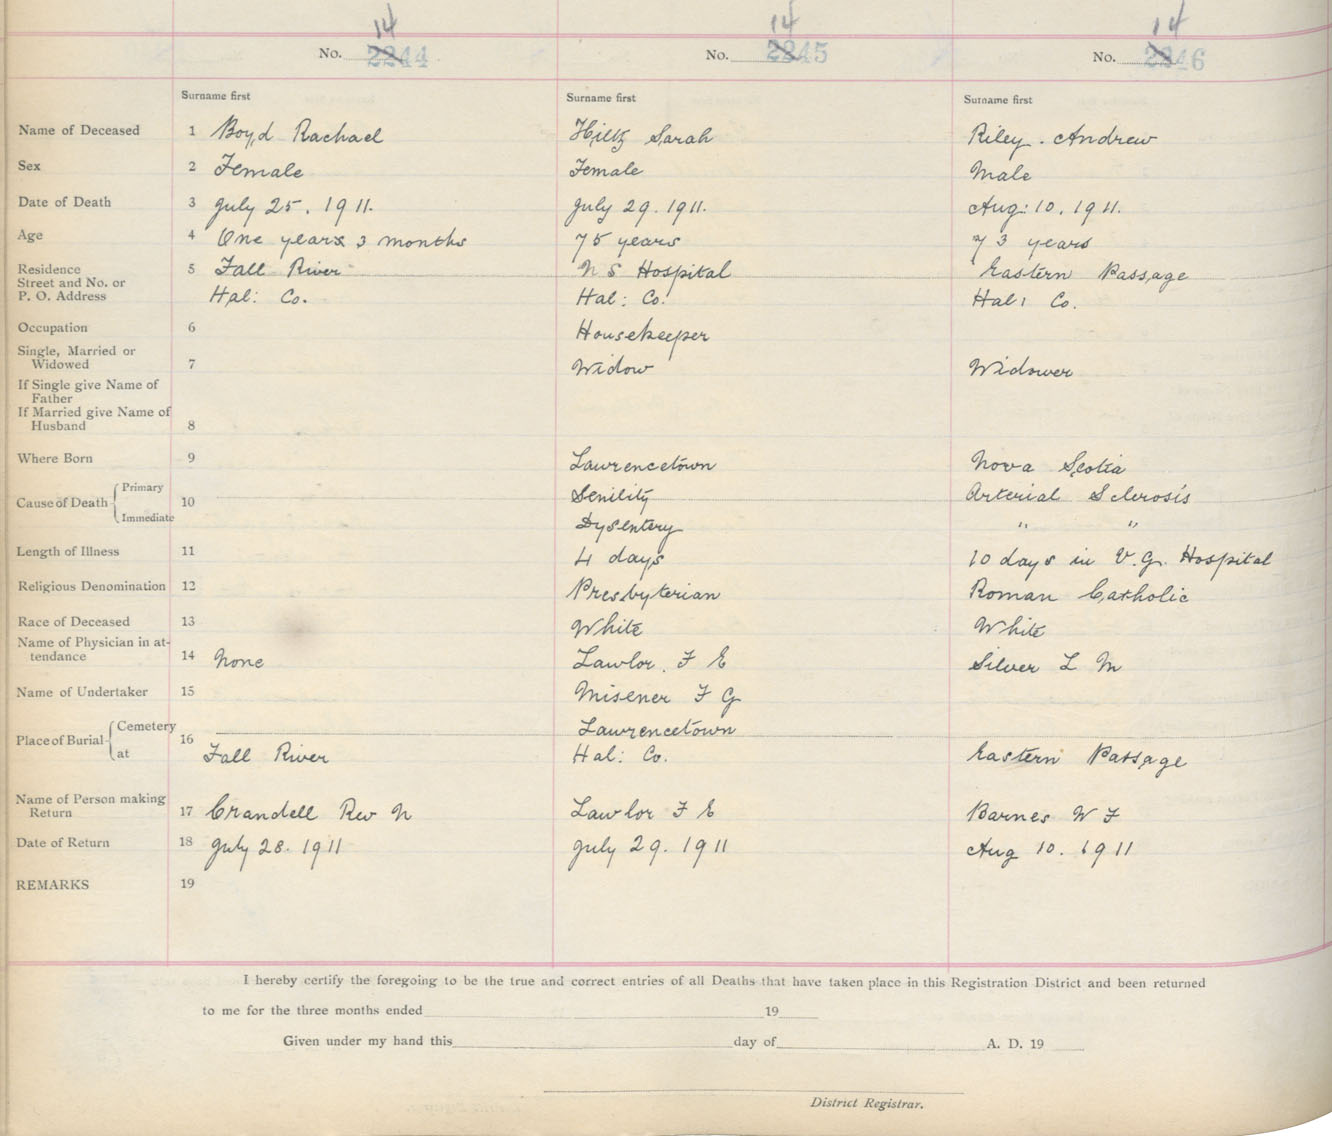 14 14 14
No. 2244 No. 2245 No. 2246
Surname first Surname first Surname first
Name of Deceased 1 Boyd Rachael Hiltz Sarah Riley. Andrew
Sex 2 Female Female Male
Date of Death 3 July 25. 1911. July 29. 1911. Aug: 10. 1911.
Age 4 One years 3 months 75 years 73 years
Residence 5 Fall River N S Hospital Eastern Passage
Street and No. or
P. O. Address Hal: Co. Hal: Co. Hal: Co.
Occupation 6 Housekeeper
Single, Married or
Widowed 7 Widow Widower
If Single give Name of
Father
If Married give Name of
Husband 8
Where Born 9 Lawrencetown Nova Scotia
Cause of Death Primary 10 Senility Arterial Sclerosis
Immediate Dysentery " "
Length of Illness 11 4 days 10 days in V. G. Hospital
Religious Denomination 12 Presbyterian Roman Catholic
Race of Deceased 13 White White
Name of Physician in at-
tendance 14 None Lawlor. F E Silver L M
Name of Undertaker 15 Misener F G
Place of Burial Cemetery 16 Lawrencetown
at Fall River Hal: Co. Eastern Passage
Name of Person making
Return 17 Crandell Rev N Lawlor F E Barnes W F
Date of Return 18 July 28. 1911 July 29. 1911 Aug 10. 1911
REMARKS 19
I hereby certify the foregoing to be the true and correct entries of all Deaths that have taken place in this Registration District and been returned
to me for the three months ended 19
Given under my hand this day of A. D. 19
District Registrar.